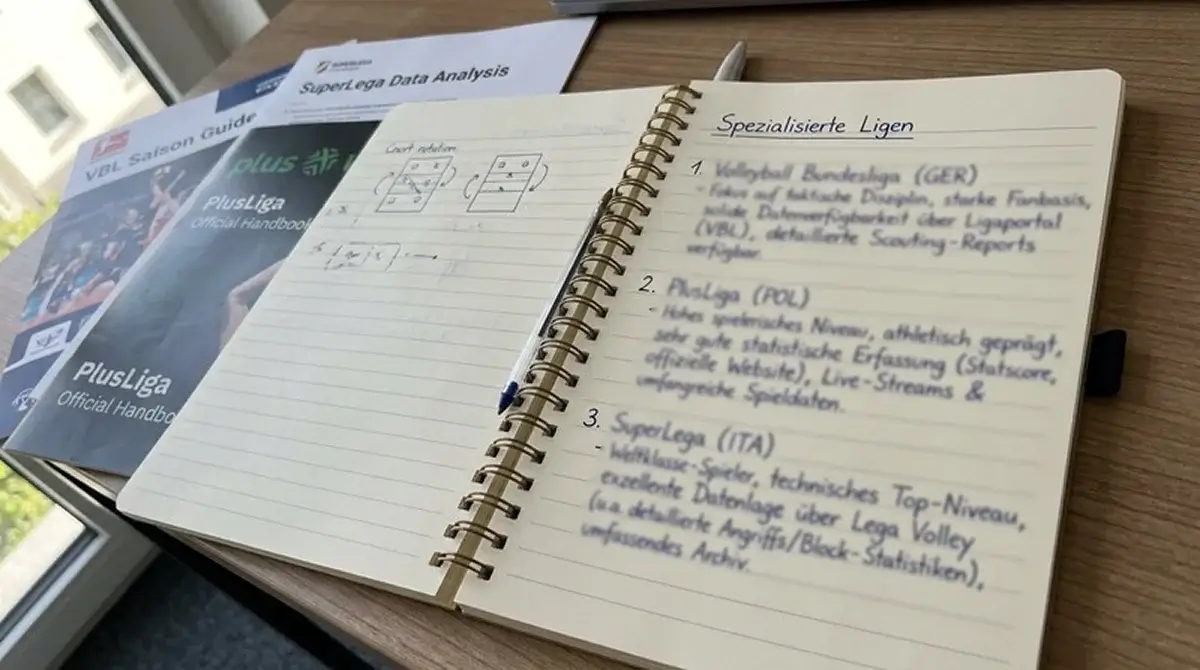 VBL Saison Guide
SuperLega Data Analysis
plus
PlusLiga
Official Handbook
PlusLiga
Official Handbo
Court rotation
Spezialisierte Ligen
1. Volleyball Bundesliga (GER)
- Fokus auf taktische Disziplin, starke Fanbasis,
solide Datenverfügbarkeit über Ligaportal
(VBL), detaillierte Scouting-Reports
verfügbar.
2. PlusLiga (POL)
- Hohes spielerisches Niveau, athletisch geprägt,
sehr gute statistische Erfassung (Statscore,
offizielle Website), Live-Streams &
umfangreiche Spieldaten.
3. SuperLega (ITA)
- Weltklasse-Spieler, technisches Top-Niveau,
exzellente Datenlage über Lega Volley
(u.a. detaillierte Angriffs/Block-Statistiken),
umfassendes Archiv.